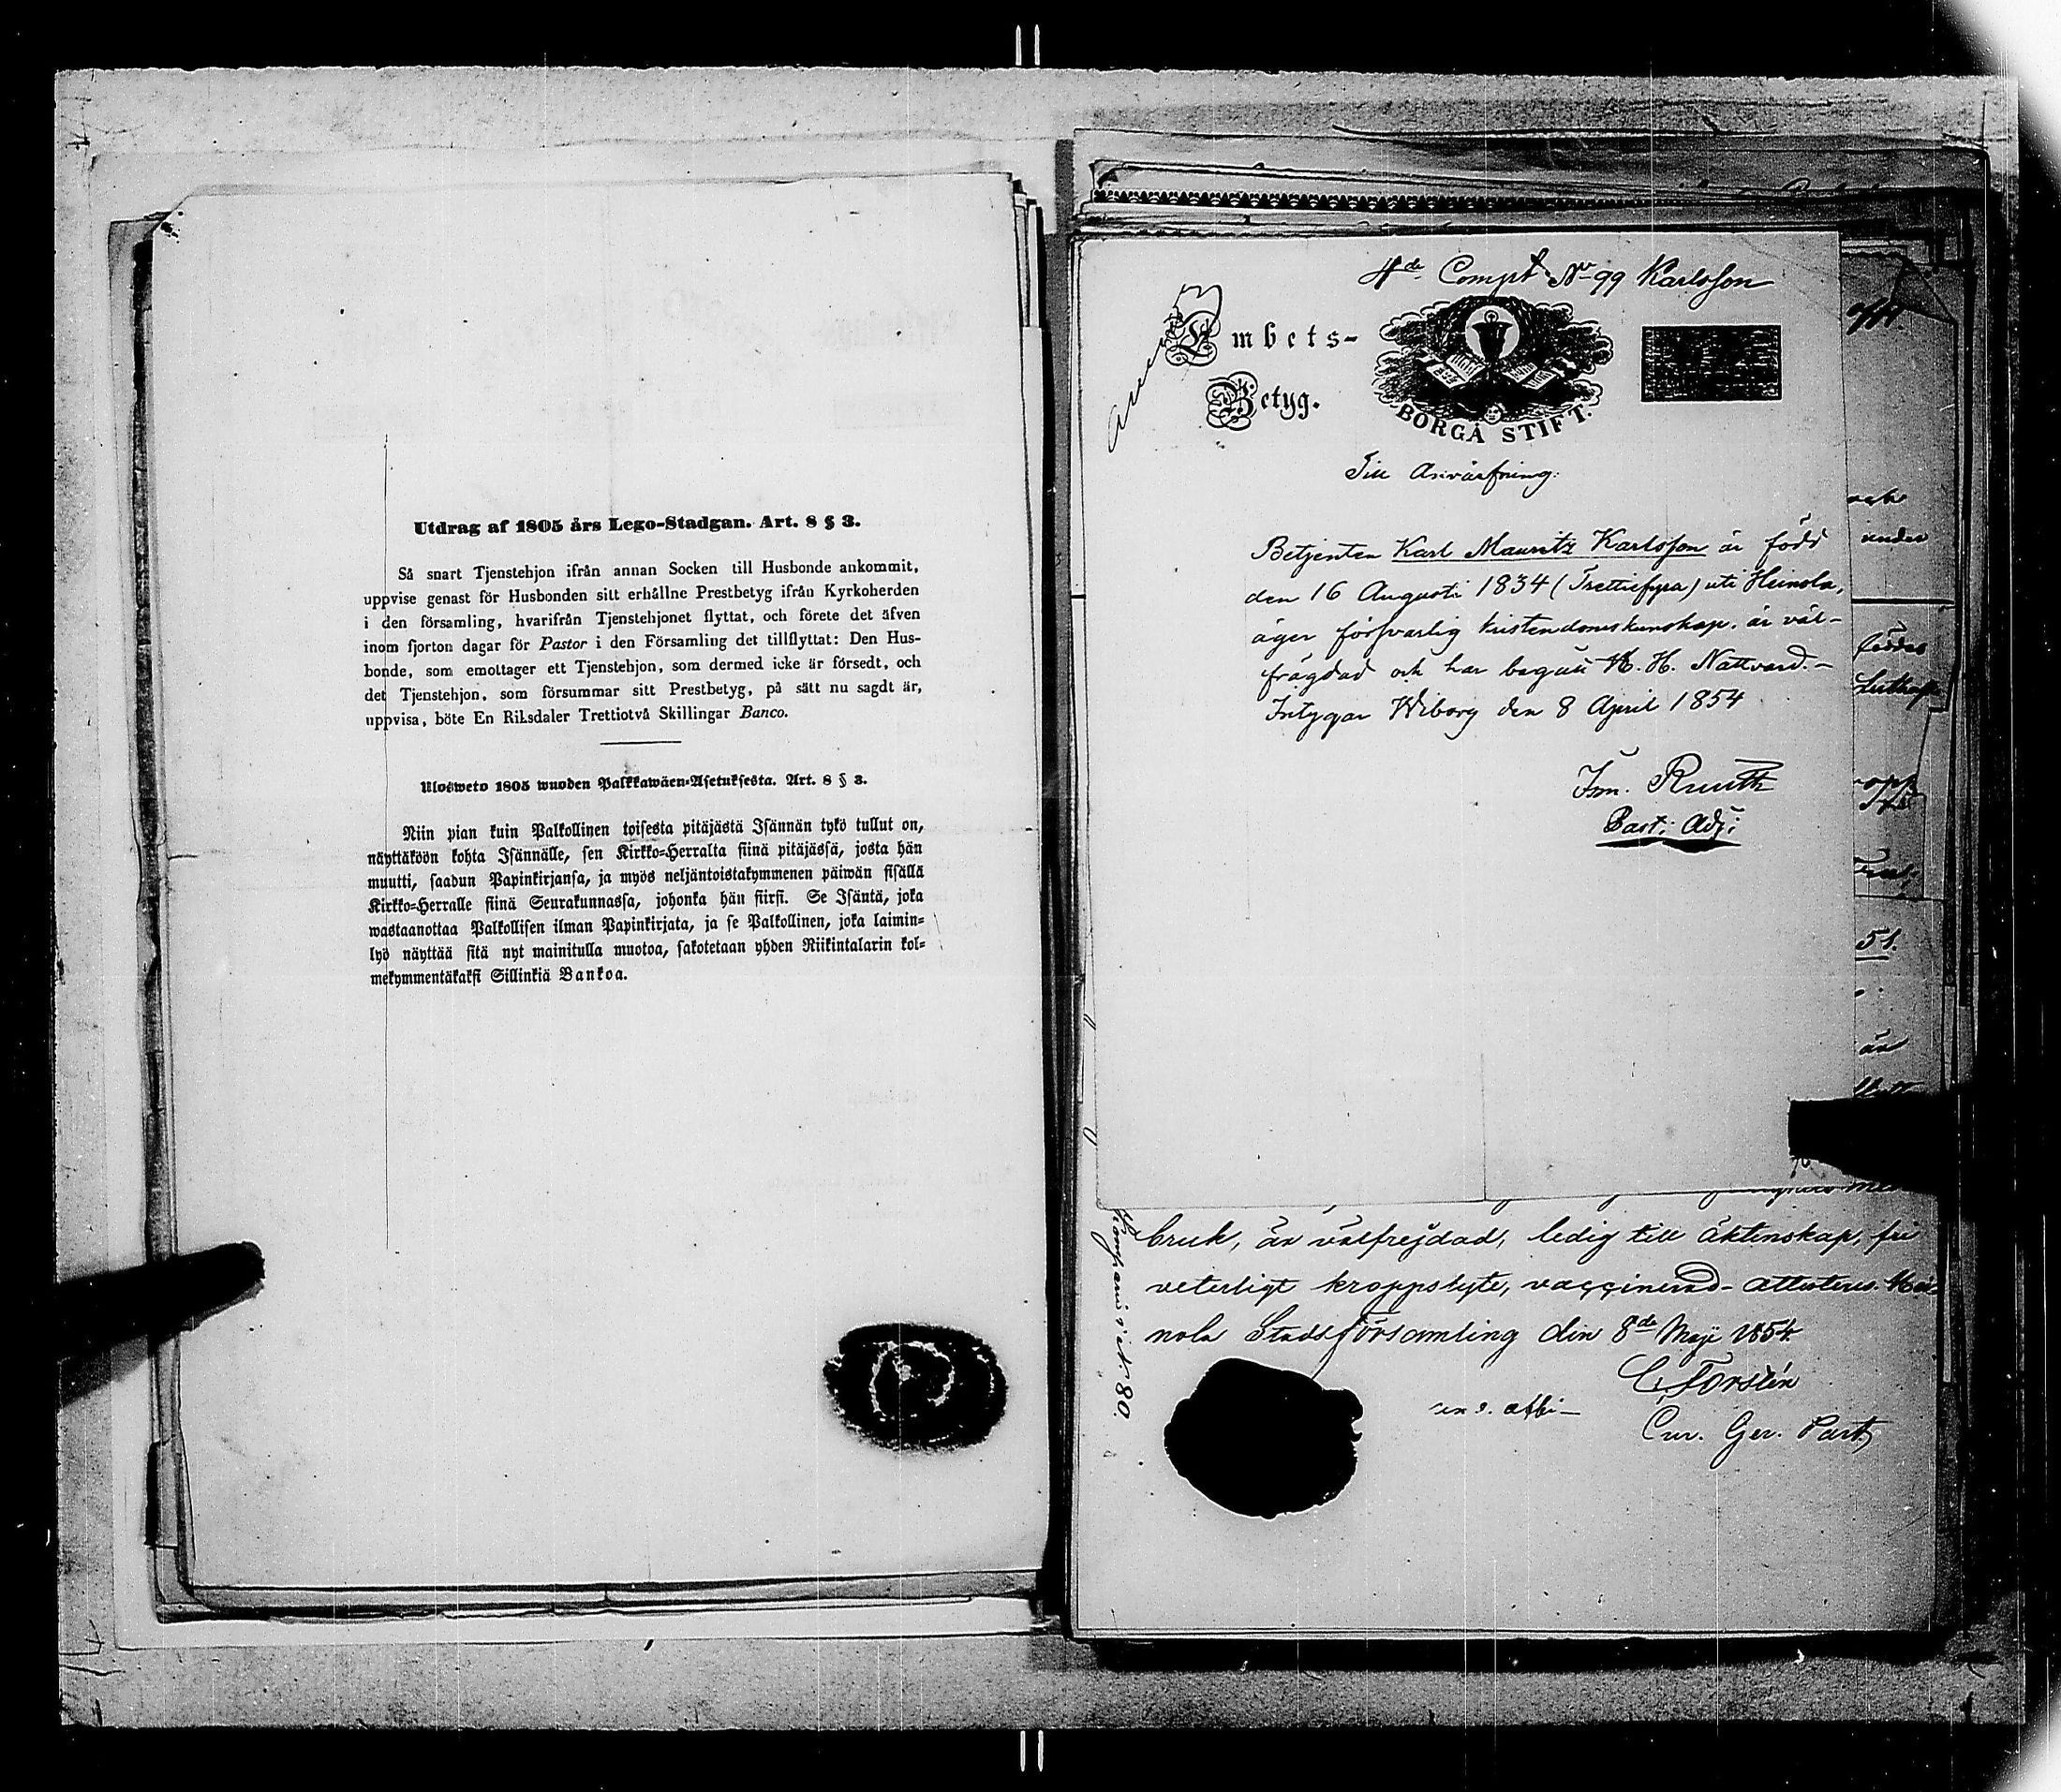 Utdrag af 1805 års Lego-Stadgan. Art. 8 § 3.
Så snart Tjenstehjon ifrån annan Socken till Husbonde ankommit,
uppvise genast för Husbonden sitt erhållne Prestbetyg ifrån Kyrkoherden
i den församling, hvarifrån Tjenstehjonet flyttat, och förete det äfven
inom fjorton dagar för Pastor i den Församling det tillflyttat: Den Hus-
bonde, som emottager ett Tjenstehjon, som dermed icke är försedt, och
det Tjenstehjon, som försummar sitt Prestbetyg, på sätt nu sagdt är,
uppvisa, böte En Riksdaler Trettiotvå Skillingar Banco.
Ulosweto 1805 wuoden Palkkawäen-Asetuksesta. Art. 8 § 3.
Niin pian kuin Palkollinen toisesta pitäjästä Isännän tykö tullut on,
näyttäköön kohta Isännälle, sen Kirkko-Herralta siinä pitäjässä, josta hän
muutti, saadun Papinkirjansa, ja myös neljäntoistakymmenen päiwän sisällä
Kirkko-Herralle siinä Seurakunnassa, johonka hän siirsi. Se Isäntä, joka
wastaanottaa Palkollisen ilman Papinkirjata, ja se Palkollinen, joka laimin-
lyö näyttää sitä nyt mainitulla muotoa, sakotetaan yhden Riikintalarin kol-
mekymmentäkaksi Sillinkiä Bankoa.
4de Compt No 99 Karlsson
Embets-
Betyg.
BORGÅ STIFT.
Till Anvärfning:
Betjenten Karl Mauritz Karlsson är född
den 16 Augusti 1834 (Trettiefyra) uti Heinola,
äger försvarlig kristendomskunskap, är väl-
frägdad och har begått H. H. Nattvard.-
Intygar Wiborg den 8 April 1854
Im. Ruuth
Past: Adj:
under
födder
51.
är
bruk, är välfrejdad, ledig till äktenskap, fri
veterligt kroppslyte, vaccinerad - attesteras. Hei-
nola Stadsförsamling den 8de Maji 1854.
C. Forstén
Cur. Ger. Past.
80.